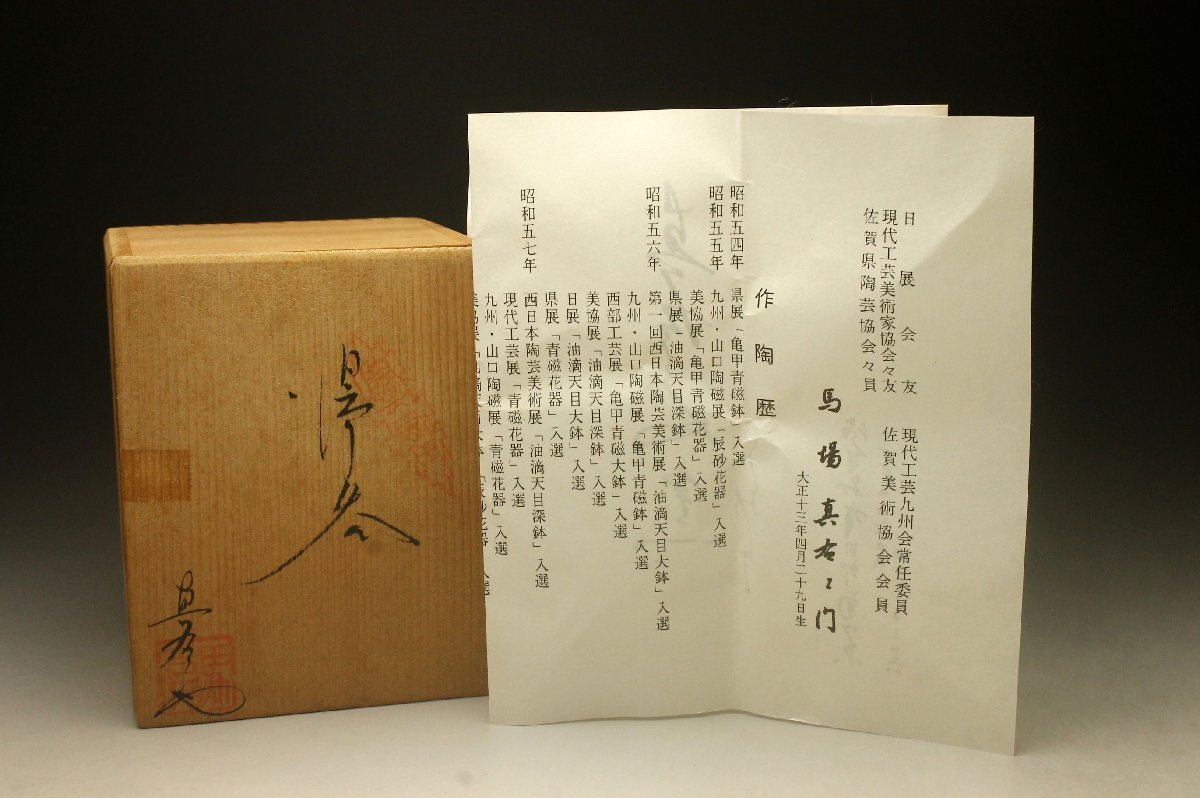 日展会友
現代工芸美術家協会々友
佐賀県陶芸協会々員
現代工芸九州会常任委員
佐賀美術協会会員
馬場真右エ门
大正十三年四月二十九日生
作陶歴
昭和五四年 県展「亀甲青磁鉢」入選
昭和五五年 九州・山口陶磁展「辰砂花器」入選
美協展「亀甲青磁花器」入選
県展「油滴天目深鉢」入選
昭和五六年 第一回西日本陶芸美術展「油滴天目大鉢」入選
九州・山口陶磁展「亀甲青磁鉢」入選
西部工芸展「亀甲青磁大鉢」入選
美協展「油滴天目深鉢」入選
日展「油滴天目大鉢」入選
県展「青磁花器」入選
昭和五七年 西日本陶芸美術展「油滴天目深鉢」入選
現代工芸展「青磁花器」入選
九州・山口陶磁展「青磁花器」入選